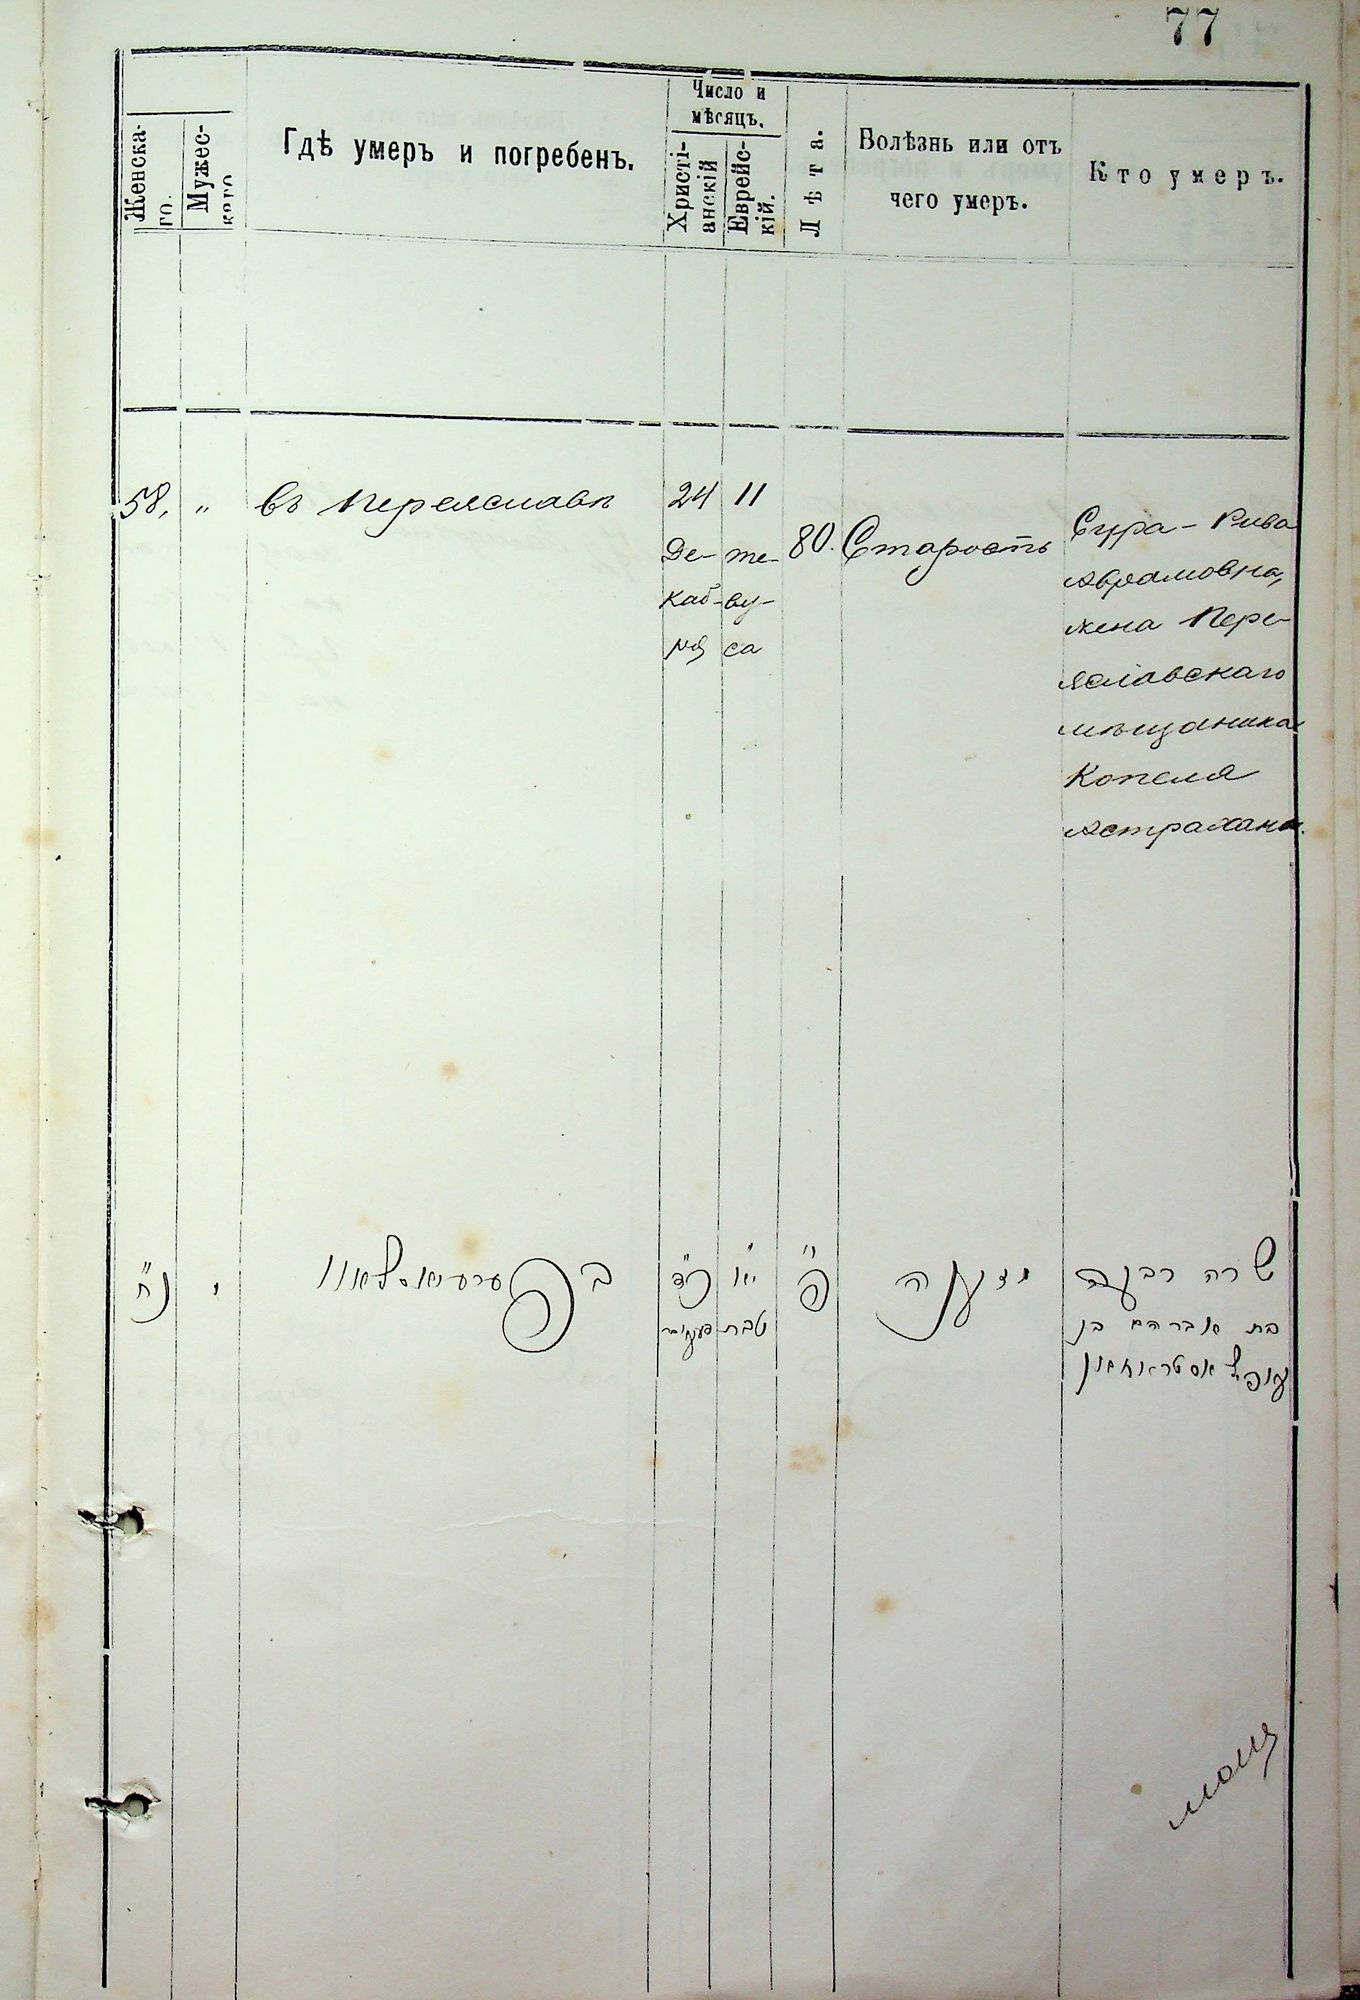 77
Женска-
го.
Мужес-
каго
Гдѣ умеръ и погребенъ.
Число и
мѣсяцъ.
Христі-
анскій
Еврейс-
кій.
Лѣта.
Болѣзнь или отъ
чего умеръ.
Кто умеръ.
58. "
въ Переяславѣ
24
Де-
каб-
ря
11
те-
ву-
са
80.
Старость
Сура-Рива
Аврамовна,
жена Пере-
яславскаго
мѣщанина
Копеля
Астрахана.
נ"ח
בפערעיאסלאוו
כ"ד
י"א
טבת
פ"
זקנה
שרה רבקה
בת אברהם בן
קאפיל אסטראחאן